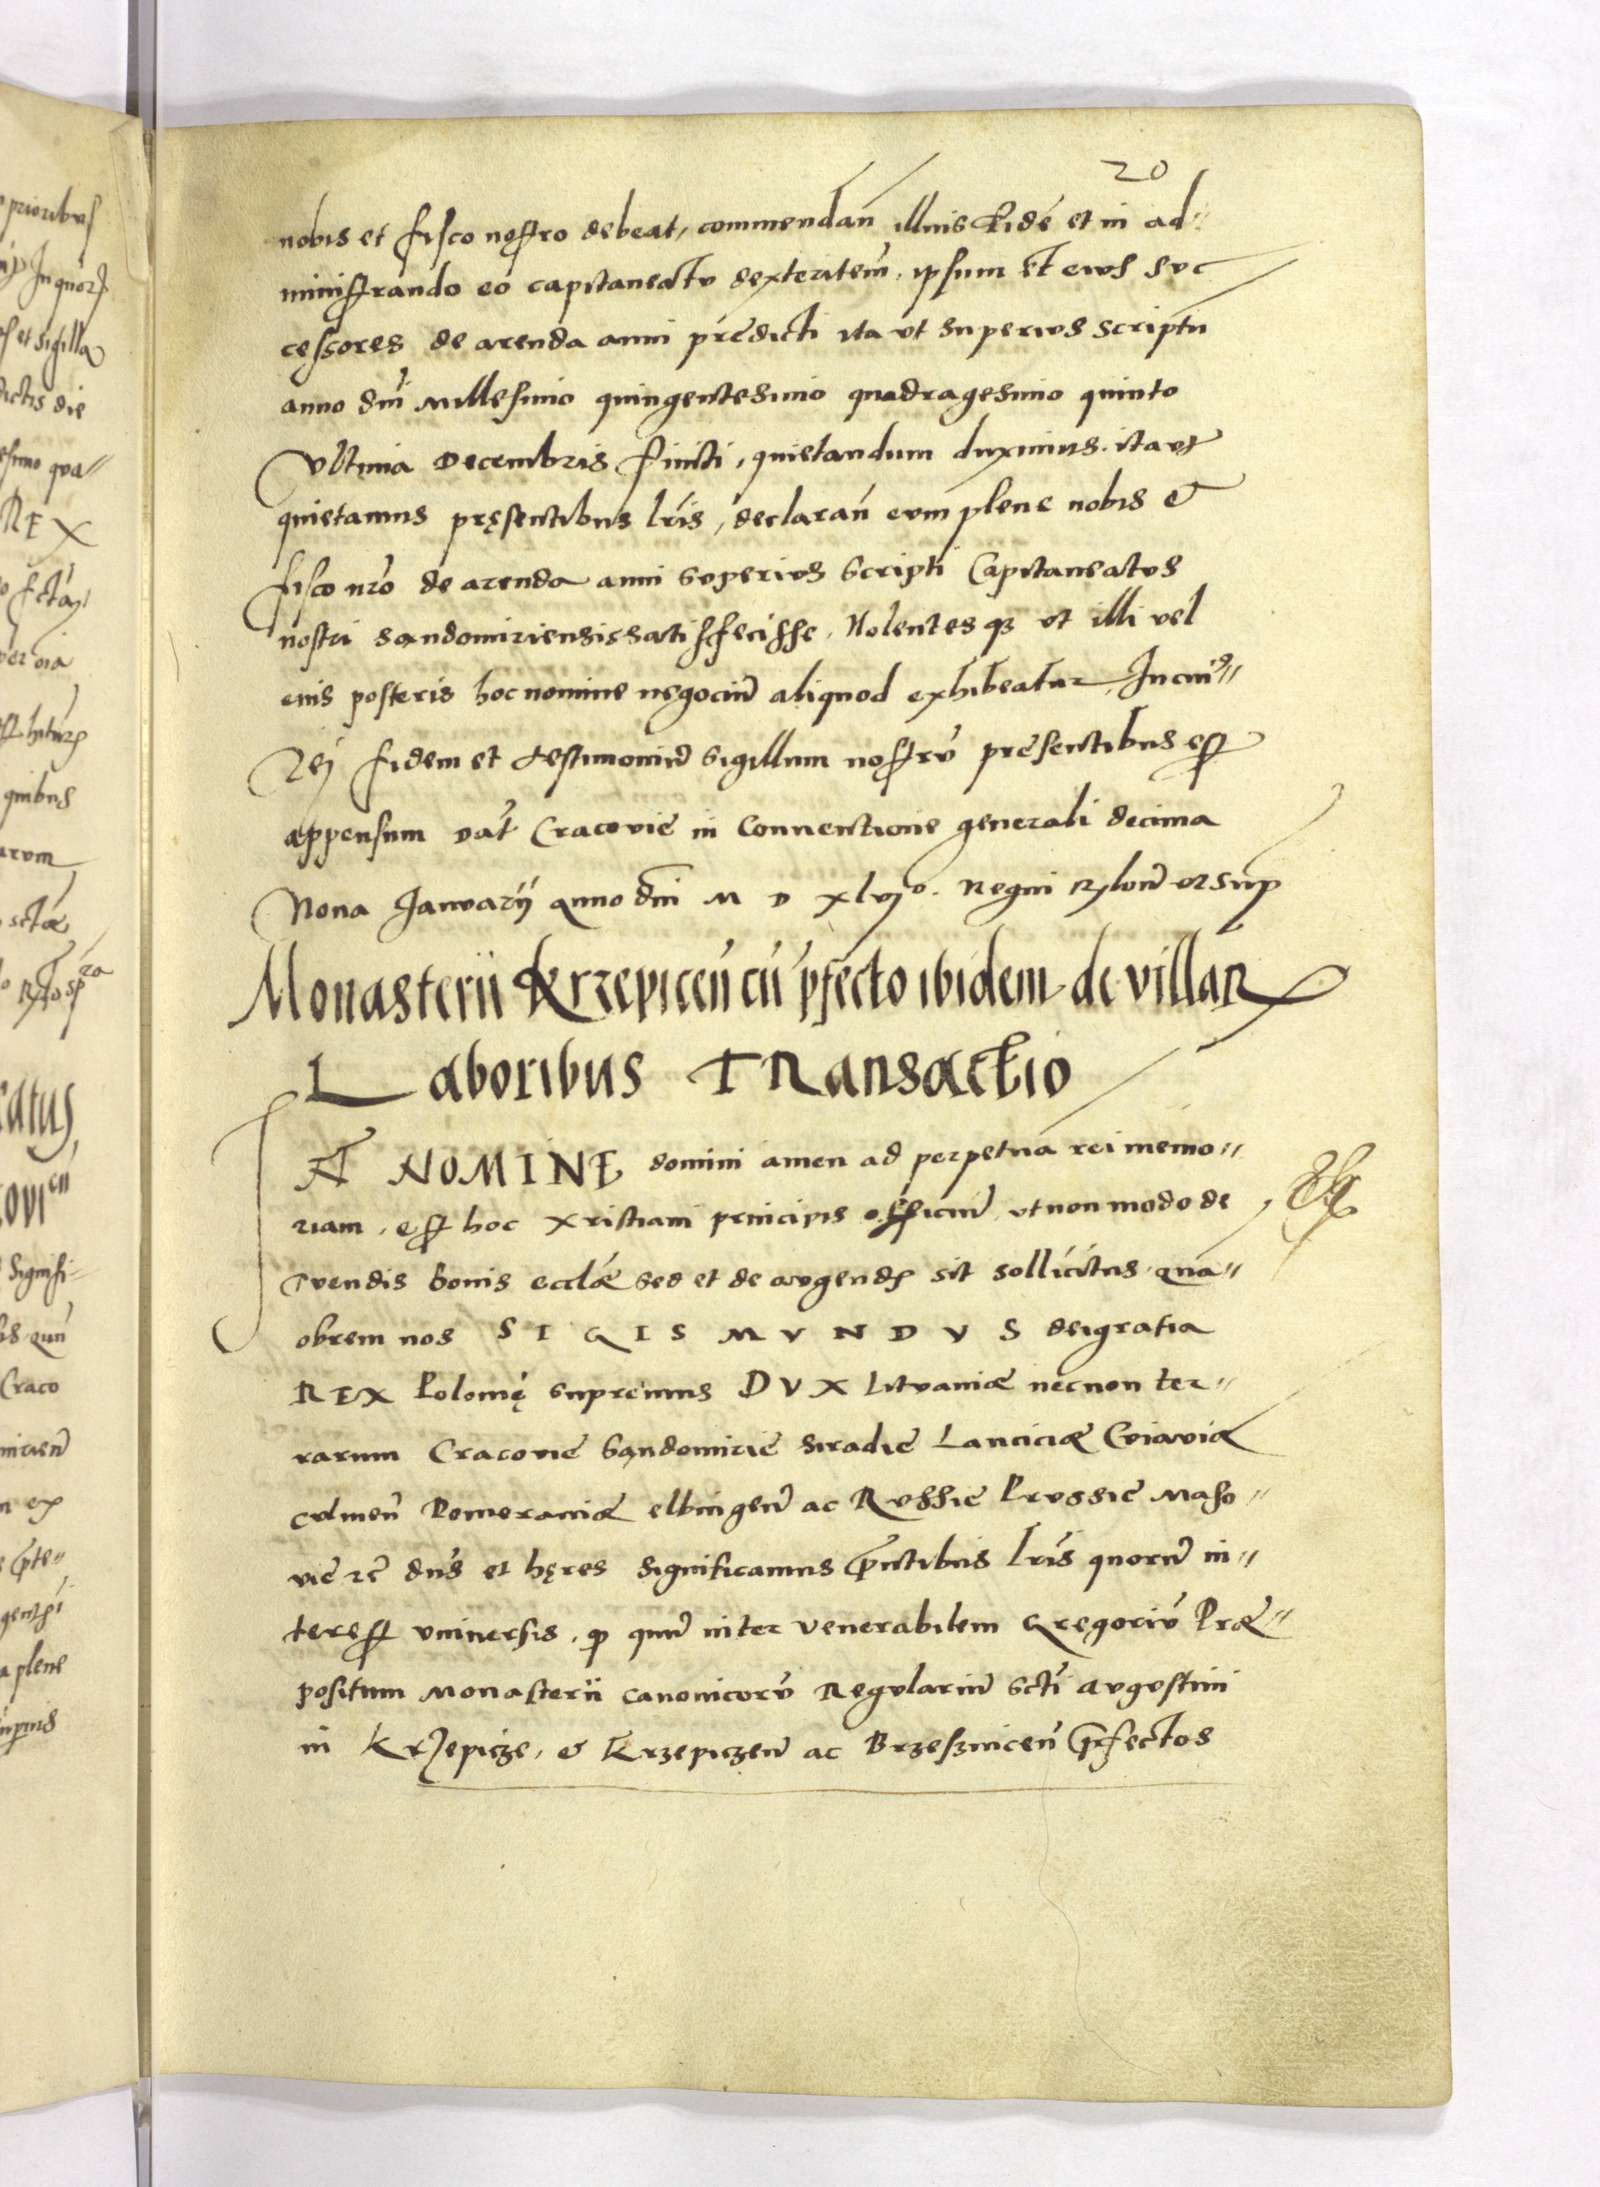 20
nobis et fisco nostro debeat, commendan̄ illius fidē et in ad„
ministrando eo capitaneatu dexteritem̄, ipsum et eius suc
cessores de arenda anni prēdicti ita ut superius scriptu
anno dn̄i millesimo quingentesimo quadragesimo quinto
ultima Decembris finiti, quietandum duximus. ita ut
quietamus pręsentibus lr̄is, declaran̄ eum plene nobis &
fisco nr̄o de arenda anni superius scripti Capitaneatus
nostri sandomiriensis satisffecisse, Nolentes qȝ ut illi vel
eius posteris hoc nomine negociū aliquod exhibeatur, In cui9„
Rej fidem et testimoniū sigillum nostrū prēsentibus est
appensum Dat̄ Cracoviē in Conventione generali decima
Nona Januarij anno dn̄i M D xlvjo. Regni
Monasterii Krzepiceñ cū pfecto ibidem de villaR
Laboribus TRansactio
IN NOMINE domini amen ad perpetua rei memo„
riam, est hoc xristiani principis officiū, ut non modo de
tuendis bonis ecclæ sed et de augend sit sollicitus, qua„
obrem nos SIGISMVNDVS dei gratia
REX Polonię supremus DVX Lituaniæ necnon ter„
rarum Cracoviē Sandomiriē Siradiē Lanciciæ Cuiaviæ
culmen̄ Pomeraniæ elbingen̄ ac Russiē Prussiē Maso„
viē zc̄ dn̄s et hęres significamus p̄ntibus lr̄is quorū in„
terest universis, qȝ quū inter venerabilem Gregoriū Præ„
positum Monasterii canonicorū Regulariū scti Augustini
in Krzepicze, & Krzepiczen̄ ac Brzesznicen̄ p̄fectos
prioribus
In quorȝ
et sigilla
dictis die
esimo qua„
REX
quibus
arum
sctæ
catus,
covicn
signifi„
Craco
a plene